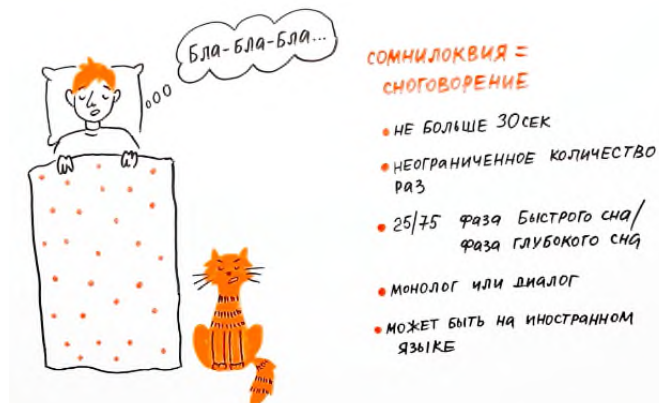 Бла-Бла-Бла...
СОМНИЛОКВИЯ =
СНОГОВОРЕНИЕ
• НЕ БОЛЬШЕ 30 СЕК
• НЕОГРАНИЧЕННОЕ КОЛИЧЕСТВО
РАЗ
• 25/75 ФАЗА БЫСТРОГО СНА/
ФАЗА ГЛУБОКОГО СНА
• МОНОЛОГ ИЛИ ДИАЛОГ
• МОЖЕТ БЫТЬ НА ИНОСТРАННОМ
ЯЗЫКЕ